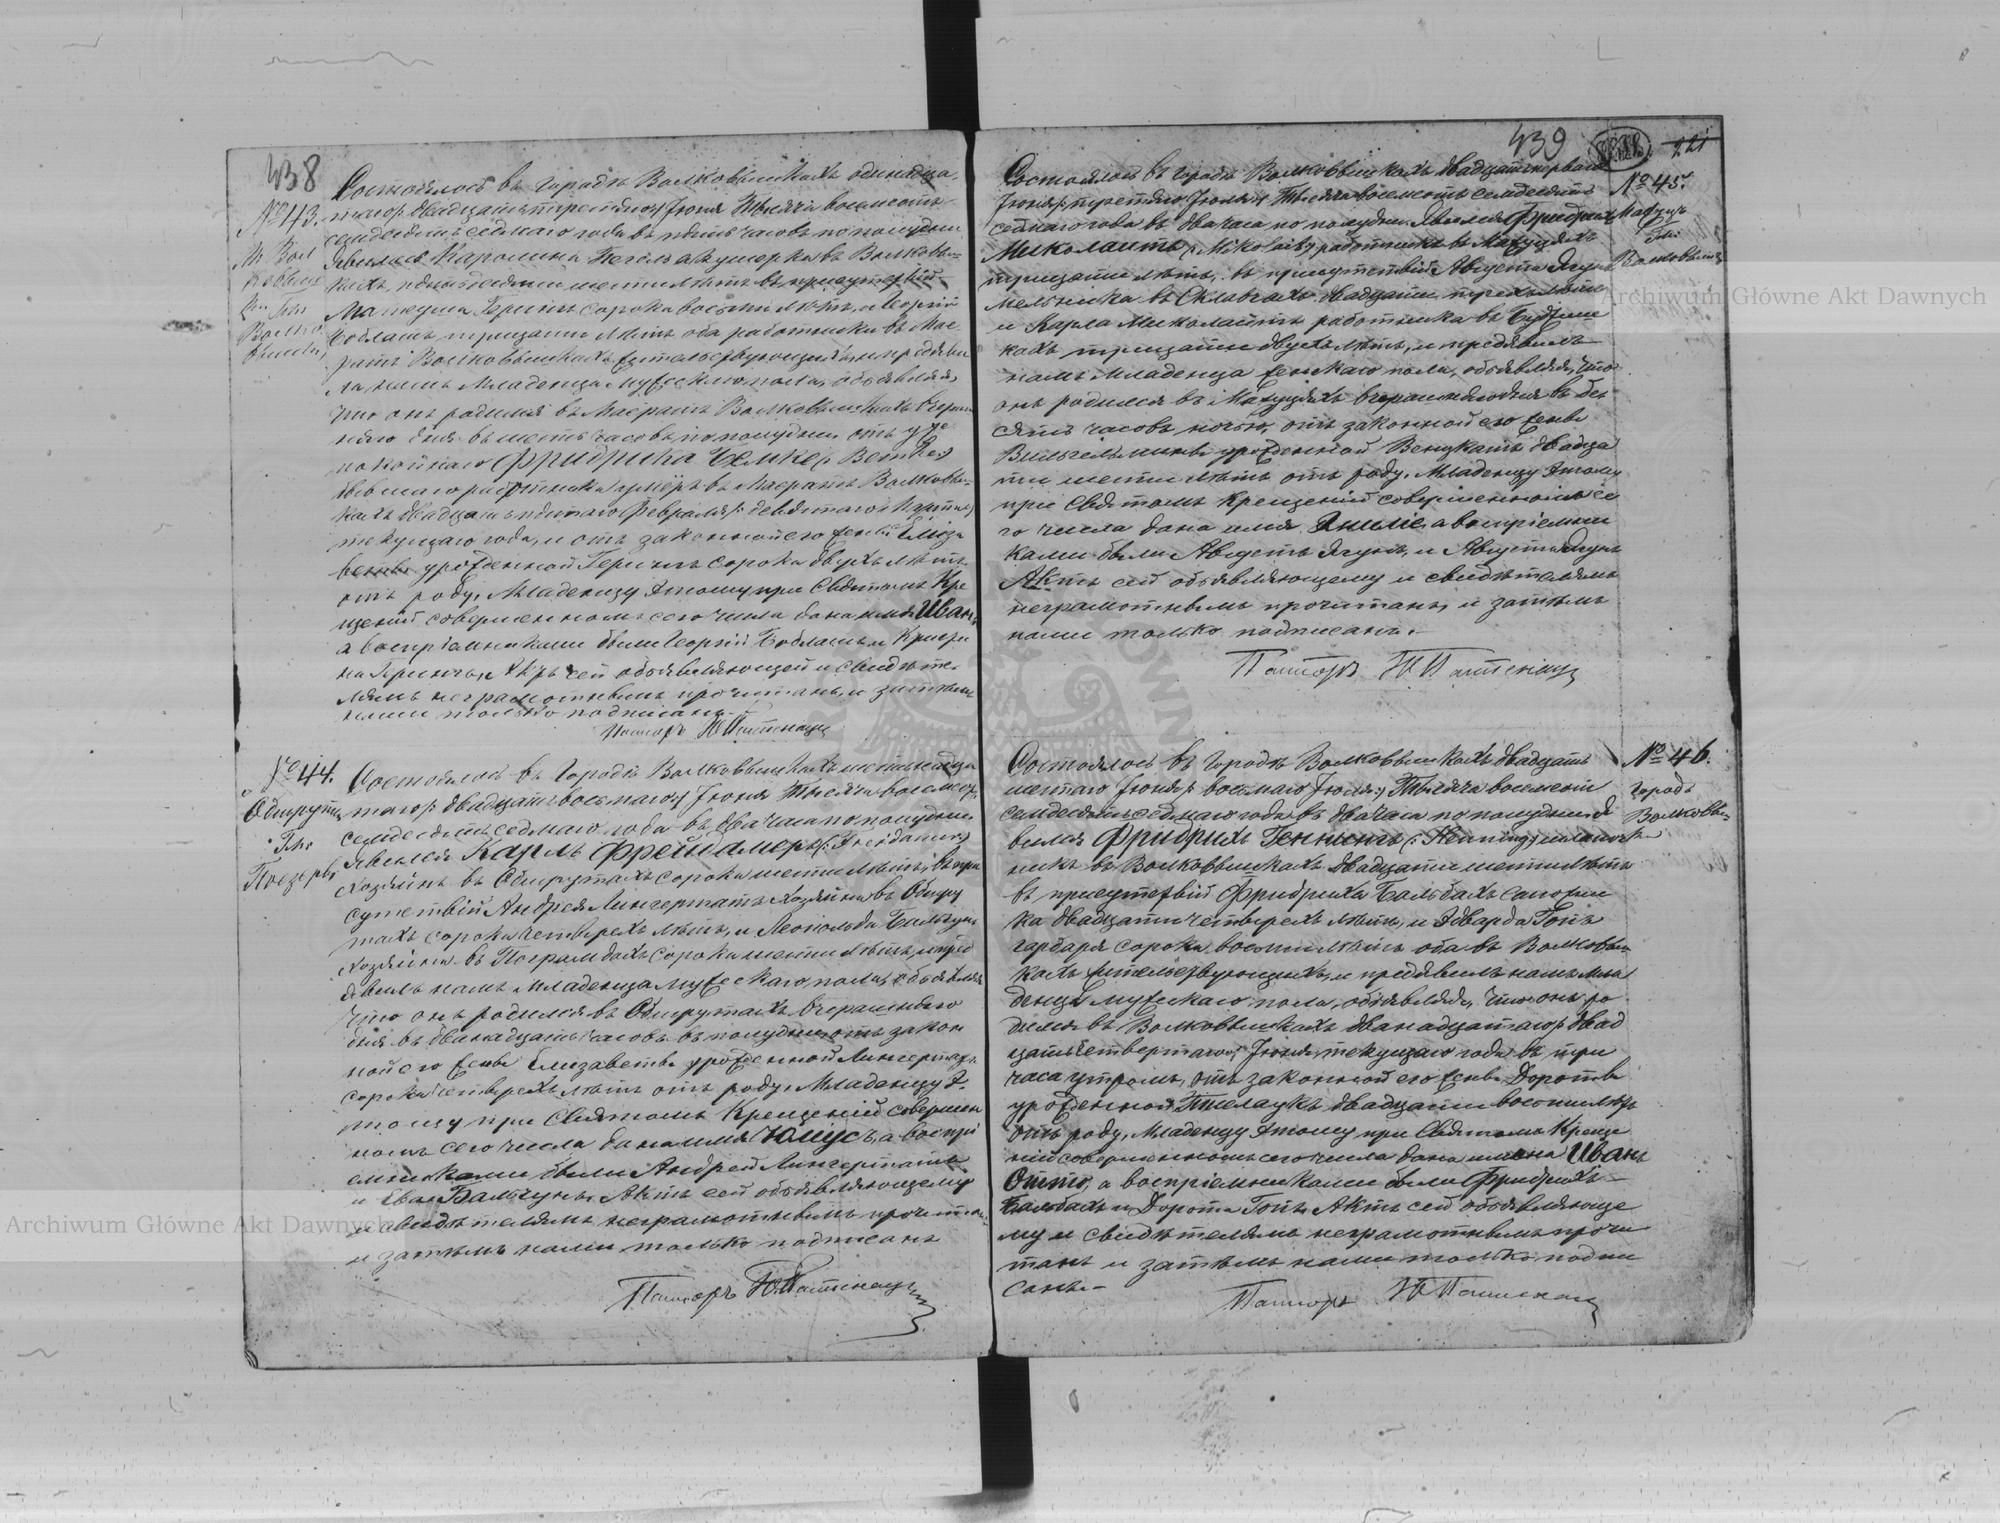 438
№ 43.
М. Вол
ковыш
Гм:
Волко
вышки
Состоялось въ городѣ Волковышкахъ одинадца
таго /: двадцать третьяго :/ Іюня Тысяча восемсотъ
семдесятъ седмаго года въ пять часовъ по полудни
Явилась Каролина Гегель акушерка въ Волковыш
кахъ, пятьдесяти шести лѣтъ въ присутствіи
Матеуша Геринъ сорока восьми лѣтъ, и Георгій
Боблатъ тридцати лѣтъ оба работники въ Мас
ратъ Волковышкахъ жительствующихъ и предъяви
ла намъ Младенца Мужескаго пола, объявляя,
что онъ родился въ Масратъ Волковышкахъ вчераш
няго дня въ шесть часовъ по полудни отъ уже
покойнаго Фридриха Бемке
бывшаго работника умеръ въ Масратъ Волковыш
кахъ двадцать пятаго Февраля /: девятаго Марта :/
текущаго года, и отъ законной его жены Елиза
веты урожденной Геринъ сорока двухъ лѣтъ
отъ роду. Младенцу этому при Святомъ Кре
щеніи совершенномъ сего числа дано имя Иванъ
а воспріемниками были Георгій Боблатъ и Кристи
на Геринъ. Актъ сей объявляющей и свидѣте
лямъ неграмотнымъ прочитанъ, и затѣмъ
нами только подписанъ.
Пасторъ
№ 44.
Обшруты
Гм:
Поезеры
Состоялось въ Городѣ Волковышкахъ шестнадца
таго /: двадцать восьмаго :/ Іюня Тысяча восемсотъ
семдесятъ седмаго года въ два часа по полудни
явился Карлъ Фрейдамеръ
хозяинъ въ Обшрутахъ сорока шести лѣтъ, въ при
сутствіи Андрея Лингертатъ хозяина въ Обшру
тахъ сорока четырехъ лѣтъ, и Леопольда Бальчунъ
хозяина въ Пограмдахъ сорока шести лѣтъ, и предъ
явилъ намъ младенца мужескаго пола, объявляя
что онъ родился въ Обшрутахъ вчерашняго
дня въ двенадцать часовъ въ полудни отъ закон
ной его жены Елизаветы урожденной Лингертатъ
сорока четырехъ лѣтъ отъ роду. Младенцу э
тому при Святомъ Крещеніи совершен
номъ сего числа дано имя Юліусъ, а воспрі
емниками были Андрей Лингертатъ
и Ева Бальчунъ. Актъ сей объявляющему
и свидѣтелямъ неграмотнымъ прочитанъ
и затѣмъ нами только подписанъ
Пасторъ
439
221
№ 45.
Махуцъ
Гм:
Волковышки
Состоялось въ городѣ Волковышкахъ двадцать перваго
Іюня /: третьяго Іюля :/ Тысяча восемсотъ семдесятъ
седмаго года въ два часа по полудни Явился Фридрихъ
Миколаитъ работникъ въ Махуцяхъ
тридцати лѣтъ, въ присутствіи Августа Ягунъ
мельника въ Склавсахъ двадцати трехъ лѣтъ
и Карла Миколаитъ работника въ Будвиш
кахъ тридцати двухъ лѣтъ, и предъявилъ
намъ Младенца женскаго пола, объявляя, что
онъ родился въ Махуцяхъ вчерашняго дня въ дес
сять часовъ ночью, отъ законной его жены
Вильгельмины урожденной Венцкатъ двадца
ти шести лѣтъ отъ роду. Младенцу этому
при Святомъ Крещеніи совершенномъ се
го числа дано имя Эмиліе, а воспріемни
ками были Августъ Ягунъ, и Августа Ягунъ
Актъ сей объявляющему и свидѣтелямъ
неграмотнымъ прочитанъ, и затѣмъ
нами только подписанъ.
Пасторъ
№ 46.
городъ
Волковыш
ки
Состоялось въ Городѣ Волковышкахъ двадцать
шестаго Іюня /: восьмаго Іюля :/ Тысяча восемсотъ
семдесятъ седмаго года въ два часа по полудни Я
вился Фридрихъ Геннингъ (: Henning :)
никъ въ Волковышкахъ двадцати шести лѣтъ
въ присутствіи Фридриха Бальбахъ сапожни
ка двадцати четырехъ лѣтъ, и Эдварда Гопъ
гарбаря сорока восьми лѣтъ оба въ Волковыш
кахъ жительствующихъ, и предъявилъ намъ Мла
денца мужескаго пола, объявляя, что онъ ро
дился въ Волковышкахъ двенадцатаго /: двад
цать четвертаго :/ Іюня текущаго года въ три
часа утромъ, отъ законной его жены Доротеи
урожденной Тшелаукъ двадцати восьми лѣтъ
отъ роду. Младенцу этому при Святомъ Креще
ніи совершенномъ сего числа даны имена Иванъ
Отто, а воспріемниками были Фридрихъ
Бальбахъ и Дорота Гопъ. Актъ сей объявляюще
му и свидѣтелямъ неграмотнымъ прочи
танъ и затѣмъ нами только подпи
санъ.
Пасторъ
Archiwum Główne Akt Dawnych
Archiwum Główne Akt Dawnych